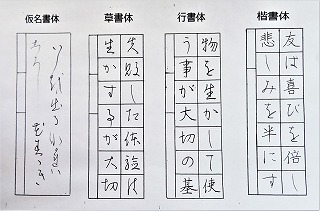 楷書体
友は喜びを倍し
悲しみを半にす
行書体
物を生かして使
う事が大切の基
草書体
失敗した体験は
生かす事が大切
仮名書体